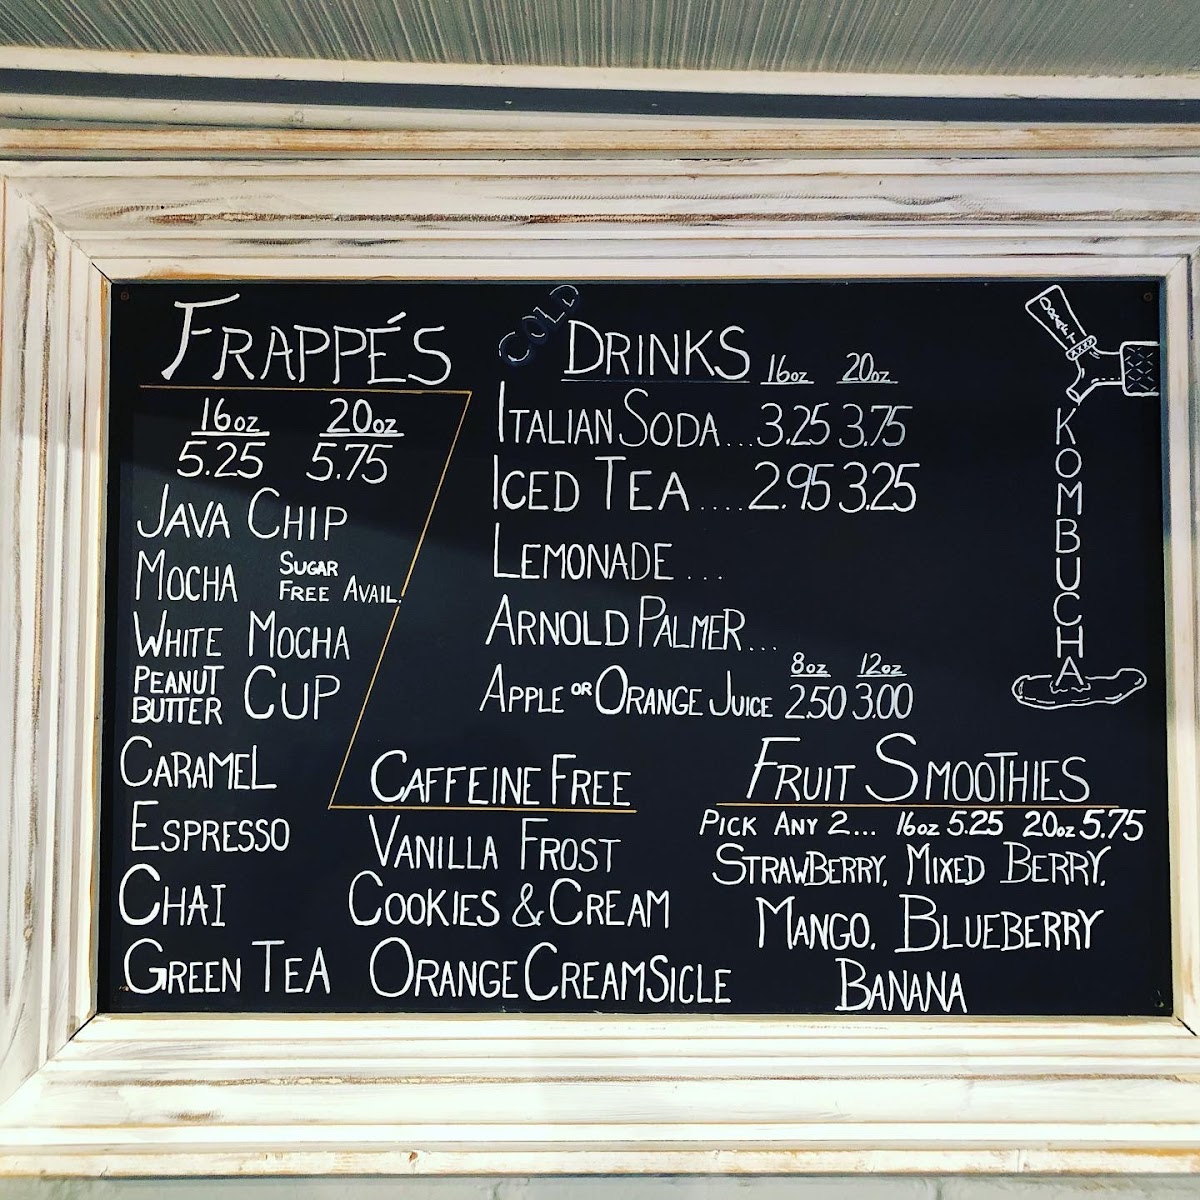 FRAPPÉS
16oz 20oz
5.25 5.75
JAVA CHIP
MOCHA SUGAR FREE AVAIL.
WHITE MOCHA
PEANUT BUTTER CUP
CARAMEL
ESPRESSO
CHAI
GREEN TEA
CAFFEINE FREE
VANILLA FROST
COOKIES & CREAM
ORANGE CREAMSICLE
COLD DRINKS 16oz 20oz
ITALIAN SODA...3.25 3.75
ICED TEA....2.95 3.25
LEMONADE...
ARNOLD PALMER...
8oz 12oz
APPLE OR ORANGE JUICE 2.50 3.00
FRUIT SMOOTHIES
PICK ANY 2... 16oz 5.25 20oz 5.75
STRAWBERRY, MIXED BERRY,
MANGO, BLUEBERRY
BANANA
KOMBUCHA